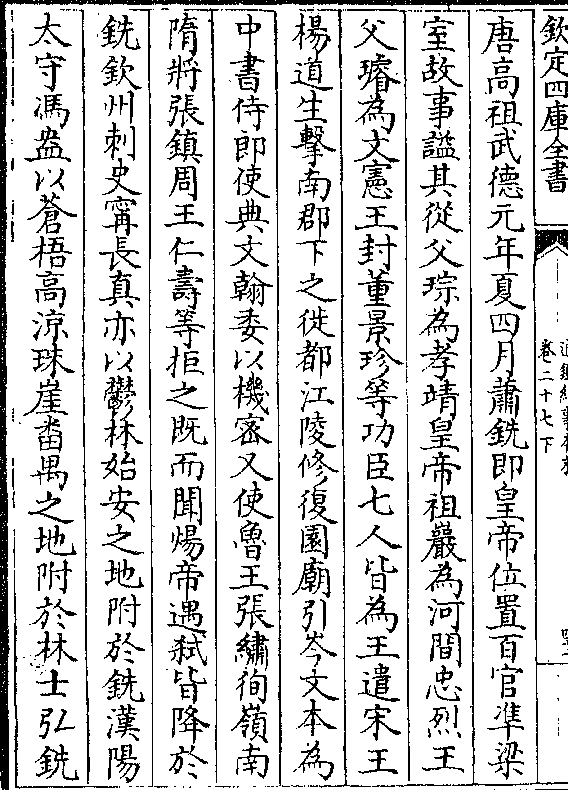 欽定四庫全書
卷二十七下
唐高祖武德元年夏四月蕭銑即皇帝位置百官凖梁
室故事謚其從父琮為孝靖皇帝祖巖為河間忠烈王
父璿為文憲王封董景珍等功臣七人皆為王遣宋王
楊道生擊南郡下之徙都江陵修復園廟引岑文本為
中書侍郎使典文翰委以機密又使魯王張繡徇嶺南
隋將張鎮周王仁壽等拒之既而聞煬帝遇弑皆降於
銑欽州刺史寗長真亦以鬱林始安之地附於銑漢陽
太守馮盎以蒼梧高凉珠崖畨禺之地附於林士弘銑